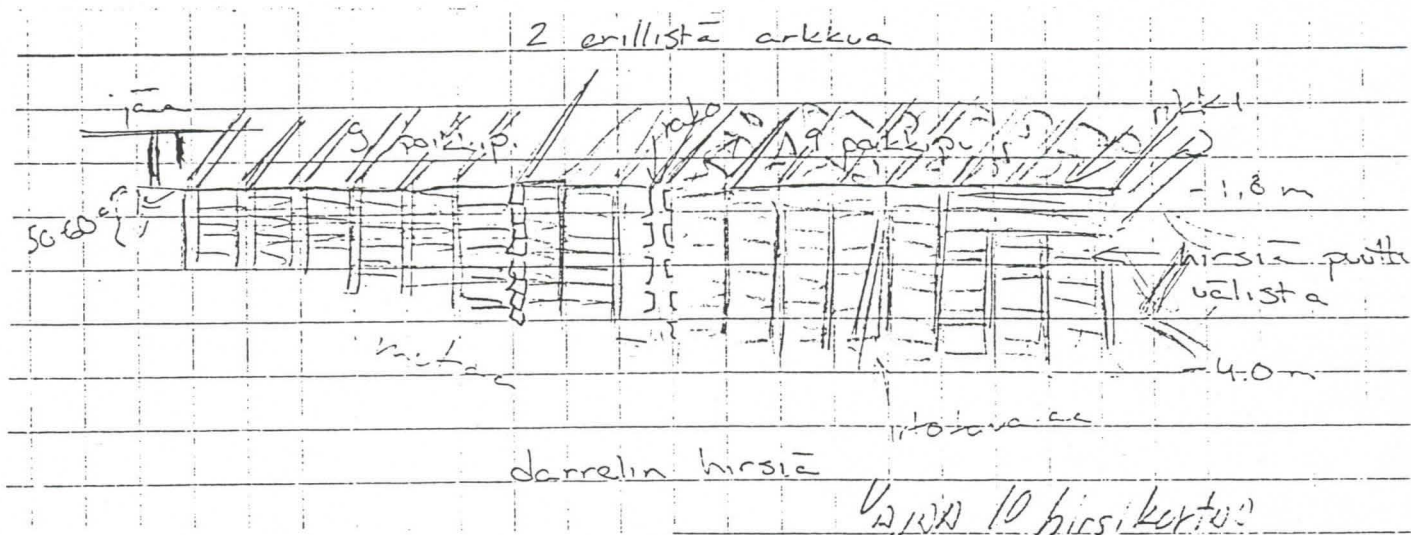 2 erillistä arkkua
jää
9 poikkip.
rako
19 poikkipu
- 1,8 m
50-60 c
hirsiä puuttu
välistä
mutaa
- 4.0 m
darrelin hirsiä
10 hirsikertaa